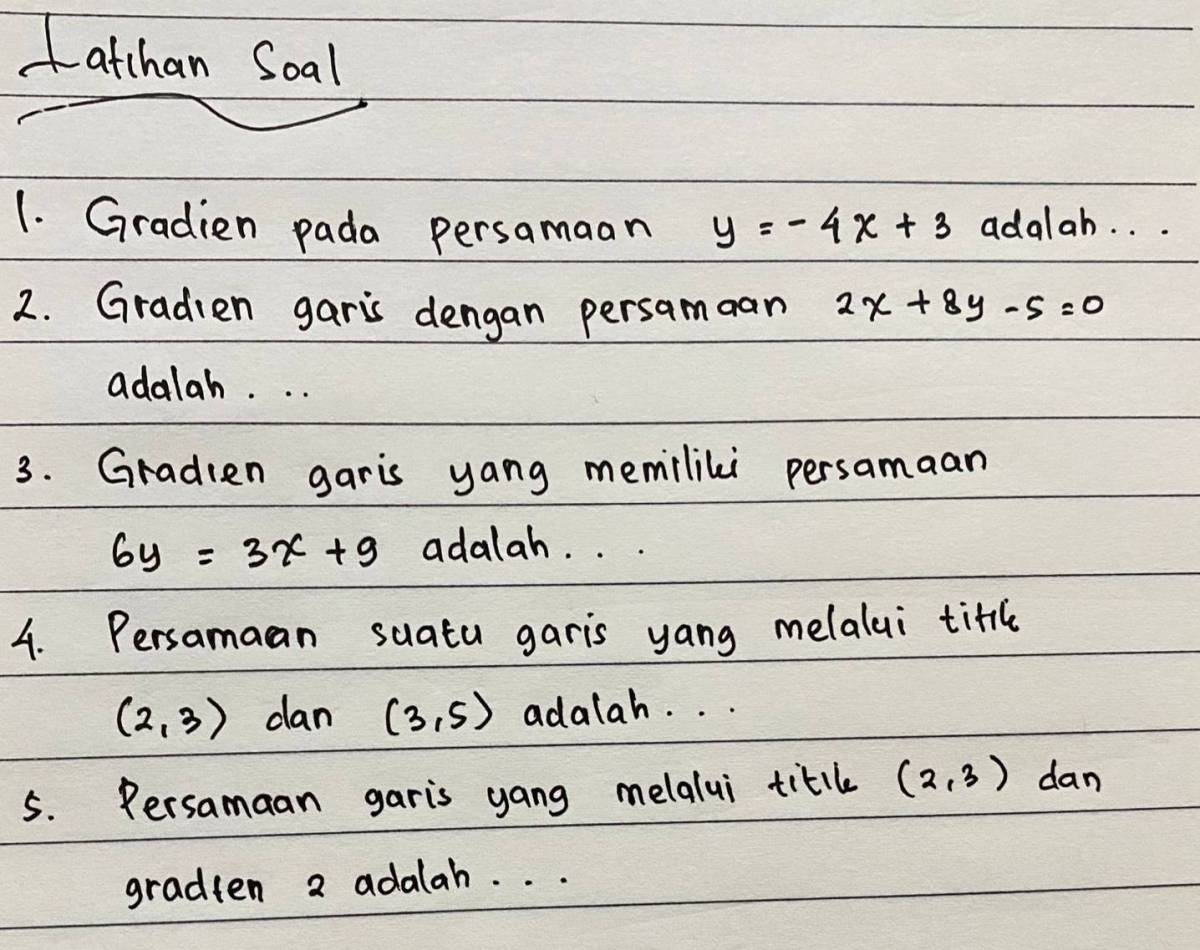 Latihan Soal
1. Gradien pada persamaan y = -4x + 3 adalah...
2. Gradien garis dengan persamaan 2x + 8y - 5 = 0
adalah...
3. Gradien garis yang memiliki persamaan
6y = 3x + 9 adalah...
4. Persamaan suatu garis yang melalui titik
(2,3) dan (3,5) adalah...
5. Persamaan garis yang melalui titik (2,3) dan
gradien 2 adalah...